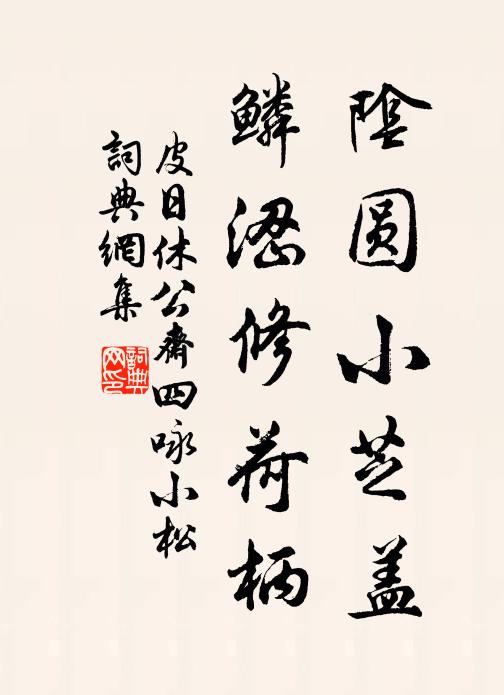 陰圓小芝蓋
鱗澀修荷柄
皮日休公齋四咏小松
詞典網集
詞典網印